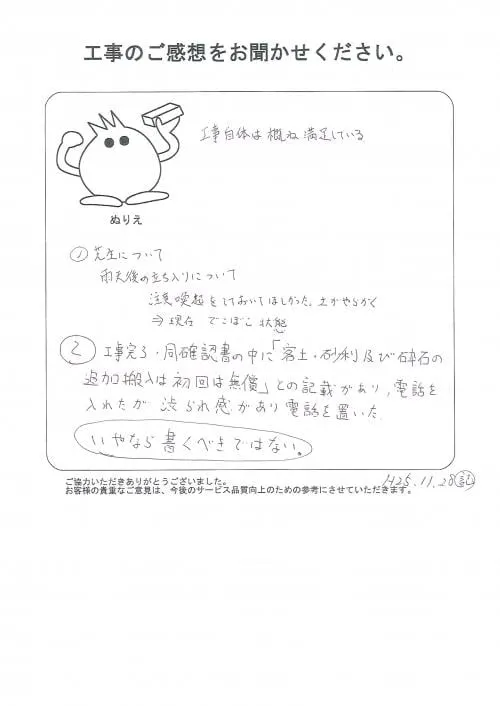 工事のご感想をお聞かせください。
工事自体は概ね満足している
ぬりえ
① 芝生について
雨天後の立ち入りについて
注意喚起をしておいてほしかった。土がやらかく
⇒現在 でこぼこ状態
② 工事完了・同確認書の中に「客土・砂利及び砕石の
追加搬入は初回は無償」との記載があり、電話を
入れたが渋られ感があり電話を置いた。
いやなら書くべきではない。
ご協力いただきありがとうございました。
お客様の貴重なご意見は、今後のサービス品質向上のための参考にさせていただきます。
H25.11.28 記